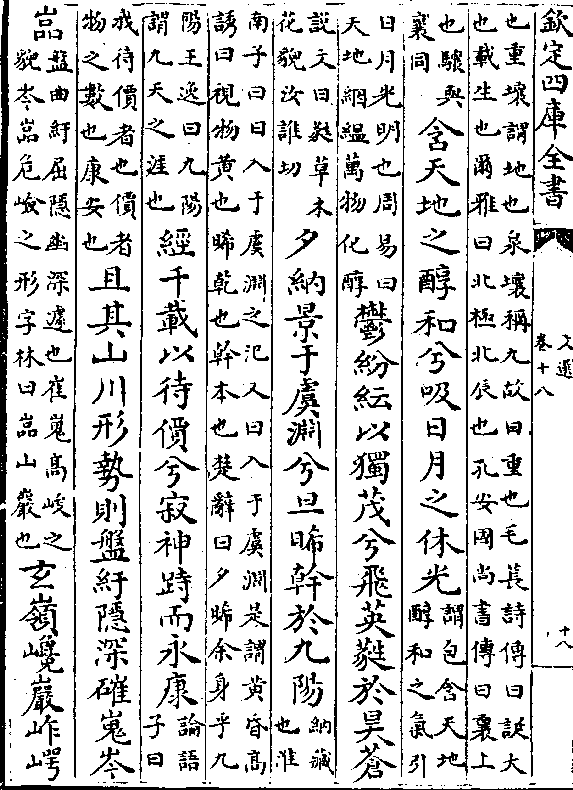 欽定四庫全書
文選
卷十八
十八
也重壤謂地也泉壤稱九故曰重也毛萇詩傳曰誕大
也載生也爾雅曰北極北辰也孔安國尚書傳曰襄上
也驤與
襄同
含天地之醇和兮吸日月之休光
謂包含天地
醇和之氣引
日月光明也周易曰
天地絪縕萬物化醇
鬱紛紜以獨茂兮飛英蕤於昊蒼
說文曰蕤草木
花貌汝誰切
夕納景于虞淵兮旦晞幹於九陽
納藏
也淮
南子曰日入于虞淵之汜又曰入于虞淵是謂黄昏高
誘曰視物黄也晞乾也幹本也楚辭曰夕晞余身乎九
陽王逸曰九陽
謂九天之涯也
經千載以待價兮寂神跱而永康
論語
子曰
我待價者也價者
物之數也康安也
且其山川形勢則盤紆隱深磪嵬岑
嵓
盤曲紆屈隱幽深邃也崔嵬高峻之
貌岑嵓危嶮之形字林曰嵓山巖也
玄嶺巉巖岞㟧